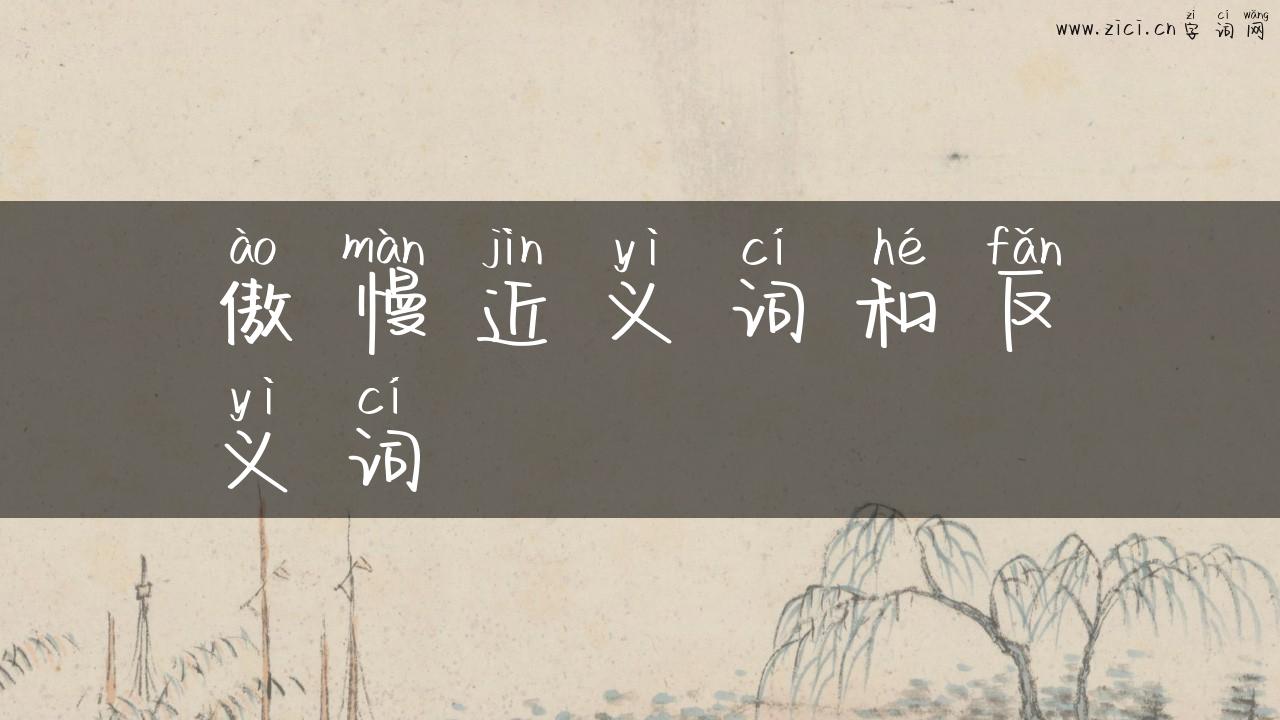 zì cí wǎng
www.zici.cn 字词网
ào màn jìn yì cí hé fǎn
傲慢近义词和反
yì cí
义词